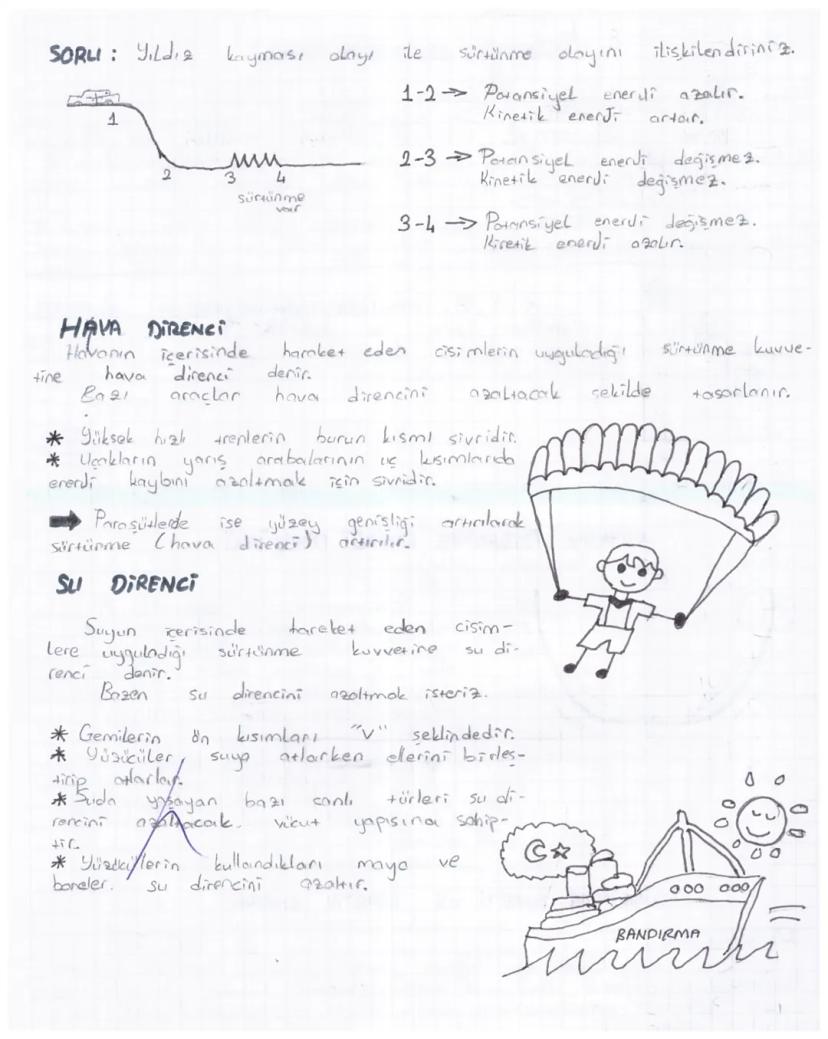 SORU : Yıldız kayması olayı ile sürtünme olayını ilişkilendiriniz.
1
2
3
4
sürtünme
var
1-2 → Potansiyel enerji azalır.
Kinetik enerji artar.
2-3 → Potansiyel enerji değişmez.
Kinetik enerji değişmez.
3-4 → Potansiyel enerji değişmez.
Kinetik enerji azalır.
HAVA DİRENCİ
Havanın içerisinde hareket eden cisimlerin uyguladığı sürtünme kuvve-
tine hava direnci denir.
Bazı araçlar hava direncini azaltacak şekilde tasarlanır.
* Yüksek hızlı trenlerin burun kısmı sivridir.
* Uçakların yarış arabalarının uç kısımlarıda
enerji kaybını azaltmak için sivridir.
➡ Paraşütlerde ise yüzey genişliği artırılarak
sürtünme (hava direnci) artırılır.
SU DİRENCİ
Suyun içerisinde hareket eden cisim-
lere uyguladığı sürtünme kuvvetine su di-
renci denir.
Bazen su direncini azaltmak isteriz.
* Gemilerin ön kısımları "V" şeklindedir.
* Yüzücüler suya atlarken ellerini birleş-
tirip atlarlar.
* Suda yaşayan bazı canlı türleri su di-
rencini azaltacak vücut yapısına sahip-
tir.
* Yüzücülerin kullandıkları mayo ve
boneler. su direncini azaltır.
BANDIRMA